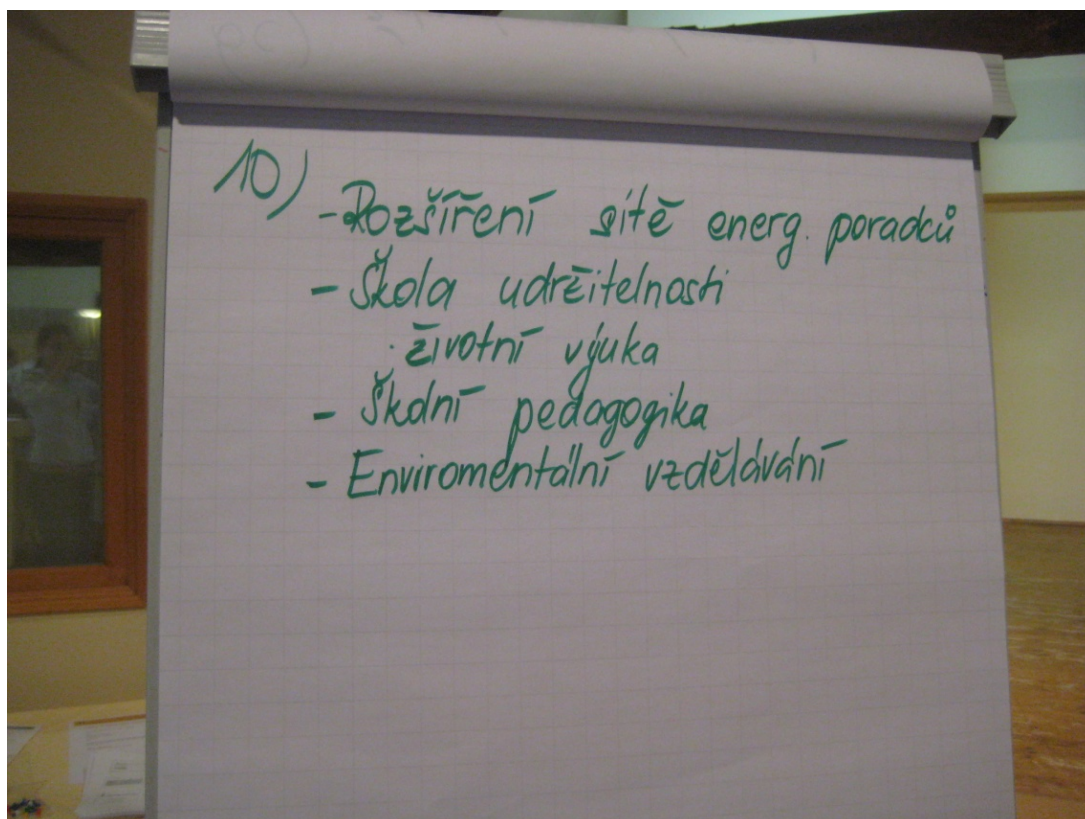 10)
- Rozšíření sítě energ. poradců
- Škola udržitelnosti
· životní výuka
- Školní pedagogika
- Enviromentální vzdělávání